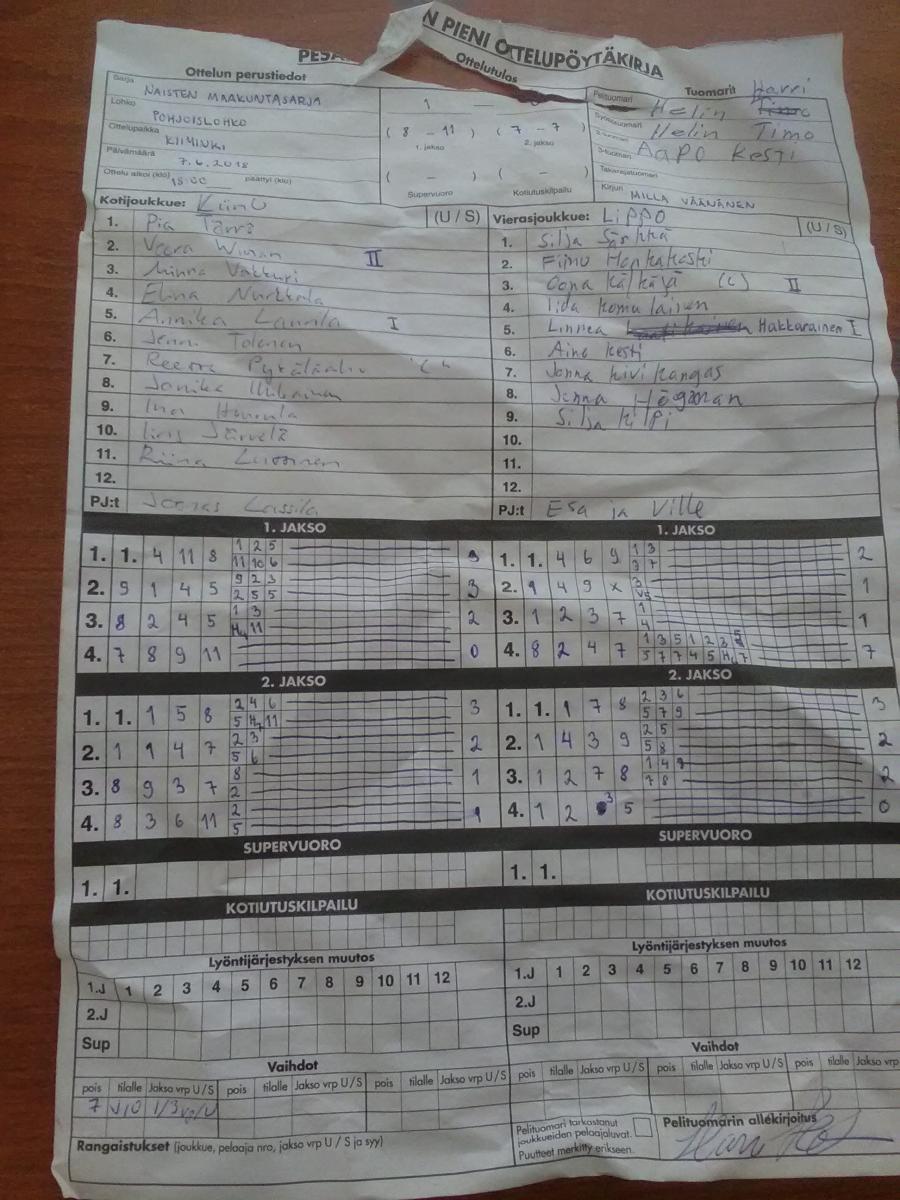 PESÄ
N PIENI OTTELUPÖYTÄKIRJA
Ottelun perustiedot
Ottelutulos
Tuomarit
Sarja
NAISTEN MAAKUNTASARJA
Lohko
POHJOISLOHKO
Ottelupaikka
KIIMINKI
Päivämäärä
7.6.2018
Ottelu alkoi (klo) 18:00 päättyi (klo)
1 –
( 8 – 11 ) ( 7 – 7 )
1. jakso 2. jakso
( – ) ( – )
Supervuoro Kotiutuskilpailu
Pelituomari Harri
Helin
Helin Timo
Aapo Kesti
Takarajatuomari
Kirjuri MILLA VÄÄNÄNEN
Kotijoukkue: KiimU (U / S)
1. Pia Tarra
2. Veera Wiman II
3. Minna Vakkuri
4. Elina Nurkkala
5. Annika Laurila I
6. Jenni Tolonen
7. Reetta
8. Janika
9. Ina
10. Iiris Järvelä
11. Riina
12.
PJ:t Joonas Lassila
Vierasjoukkue: LIPPO (U / S)
1. Silja Särkkä
2. Fimu Honkakoski
3. Oona Kälkäjä (c) II
4. Iida Komulainen
5. Linnea Hakkarainen I
6. Aino Kesti
7. Jonna Kivikangas
8. Jenna Högman
9. Silja Kilpi
10.
11.
12.
PJ:t Esa ja Ville
1. JAKSO
1. 1. 4 11 8 1 2 5 3
11 10 6
2. 9 1 4 5 9 2 3 3
2 5 5
3. 8 2 4 5 1 3 2
H4 11
4. 7 8 9 11 0
1. JAKSO
1. 1. 4 6 9 1 3 2
3 7
2. 1 4 9 x 3 1
V5
3. 1 2 3 7 1 1
4
4. 8 2 4 7 1 3 5 1 2 3 5 7
5 7 7 4 5 H1 7
2. JAKSO
1. 1. 1 5 8 2 4 6 3
5 H7 11
2. 1 1 4 7 2 3 2
5 6
3. 8 9 3 7 8 1
2
4. 8 3 6 11 2 1
5
2. JAKSO
1. 1. 1 7 8 2 3 6 3
5 7 9
2. 1 4 3 9 2 5 2
5 8
3. 1 2 7 8 1 4 2
7 8
4. 1 2 3 5 0
SUPERVUORO
1. 1.
KOTIUTUSKILPAILU
SUPERVUORO
1. 1.
KOTIUTUSKILPAILU
Lyöntijärjestyksen muutos
1.J 1 2 3 4 5 6 7 8 9 10 11 12
2.J
Sup
Lyöntijärjestyksen muutos
1.J 1 2 3 4 5 6 7 8 9 10 11 12
2.J
Sup
Vaihdot
pois tilalle Jakso vrp U / S pois tilalle Jakso vrp U / S pois tilalle Jakso vrp U / S
7 V10 1/3
Vaihdot
pois tilalle Jakso vrp U / S pois tilalle Jakso vrp U / S pois tilalle Jakso vrp
Rangaistukset (joukkue, pelaaja nro, jakso vrp U / S ja syy)
Pelituomari tarkastanut
joukkueiden pelaajaluvat.
Puutteet merkitty erikseen.
Pelituomarin allekirjoitus